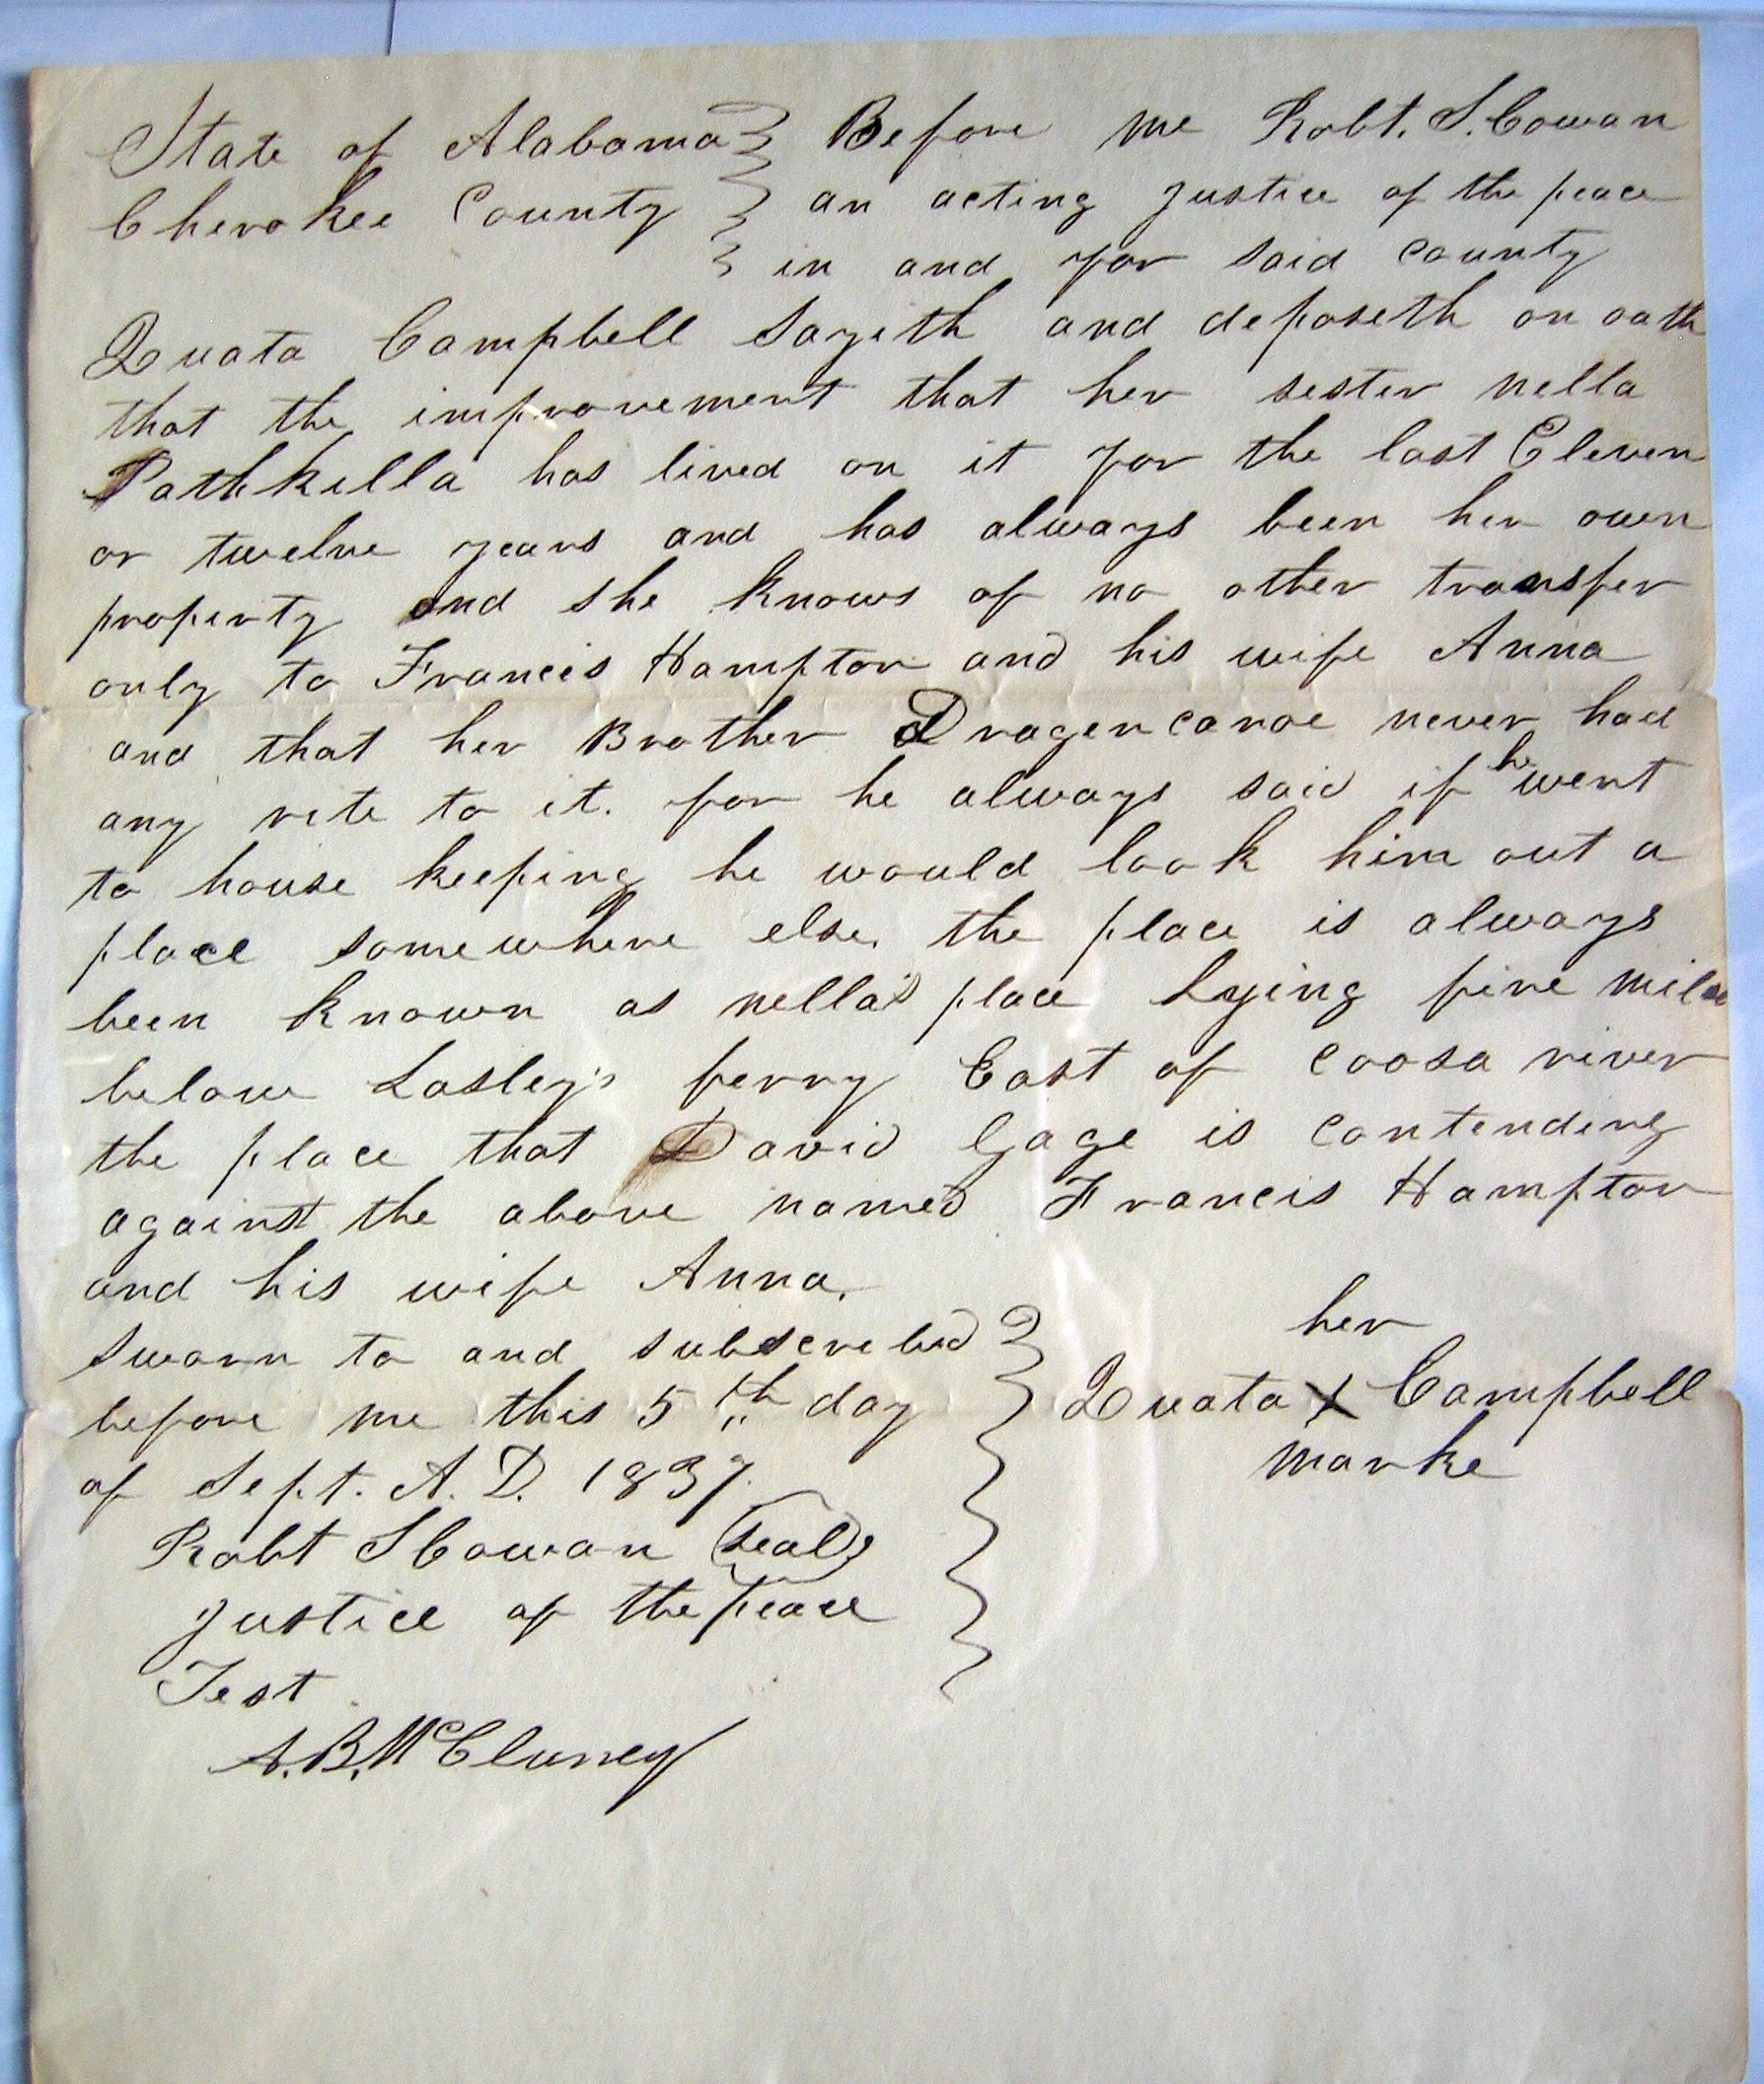 State of Alabama } Before me Robt. S. Cowan
Cherokee County } an acting justice of the peace
} in and for said county
Quata Campbell Sayeth and deposeth on oath
that the improvement that her sester nella
Pathkilla has lived on it for the last Eleven
or twelve years and has always been her own
property and she knows of no other transfer
only to Francis Hampton and his wife Anna
and that her Brother Dragen canoe never had
any rite to it. for he always said if he went
to house keeping he would look him out a
place somewhere else. the place is always
been known as nella's place Lying five miles
below Lasley's ferry East of Coosa river
the place that David Gage is contending
against the above named Francis Hampton
and his wife Anna.
Sworn to and subscribed
before me this 5th day
of Sept. A. D. 1837.
Robt S Cowan (seal)
justice of the peace
Test
A. B. McCluney
her
Quata X Campbell
marke